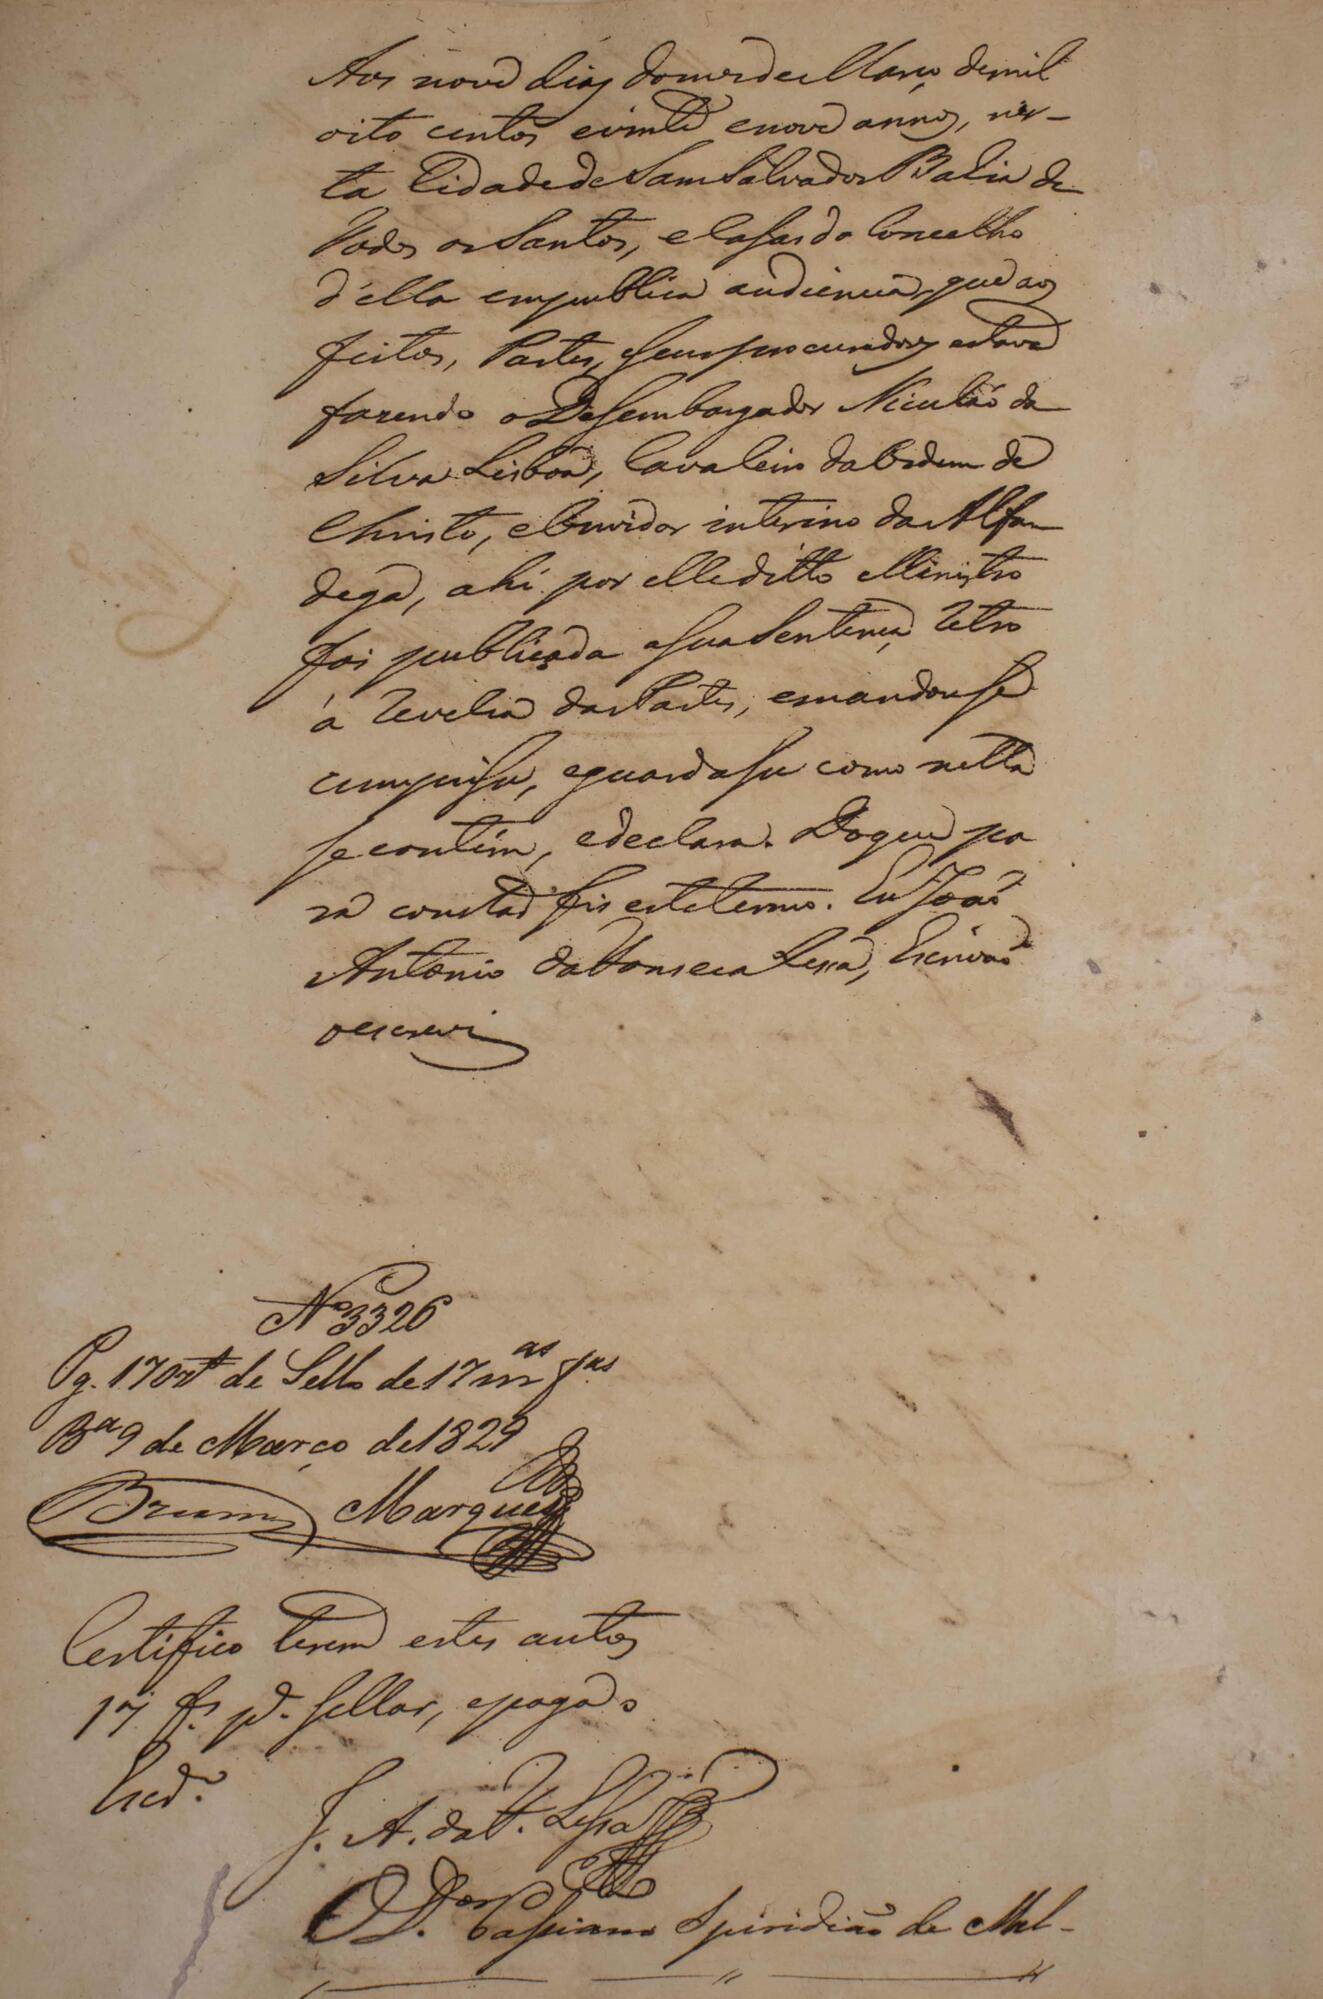 Aos nove dias do mes de Março de mil
oito centos e vinte e nove annos, nes-
ta Cidade de Sam Salvador Bahia de
Todos os Santos, e Casas do Concelho
d'ella em publica audiencia, que aos
feitos, Partes, e seus procuradores estava
fazendo o Desembargador Niculáo da
Silva Lisboa, Cavaleiro da Ordem de
Christo, e Ouvidor interino da Alfan
dega, ahi por elle ditto Ministro
foi publicada a sua Sentença retro
á revelia das Partes, e mandou se
cumprisse, e guardasse como nella
se contém, e declara. Do que pa
ra constar fis este termo. Eu João
Antonio da Fonseca Lessa, Escrivão
o escrevi
Nº 3326
Pg. 1700 de Sello de 17 mas fas
Bª 9 de Março de 1829
Marques
Certifico terem estes autos
17 fs. pª. sellar, e pagado
J. A. da F. Lessa
O D.or Cassiano Spiridião de Mel-